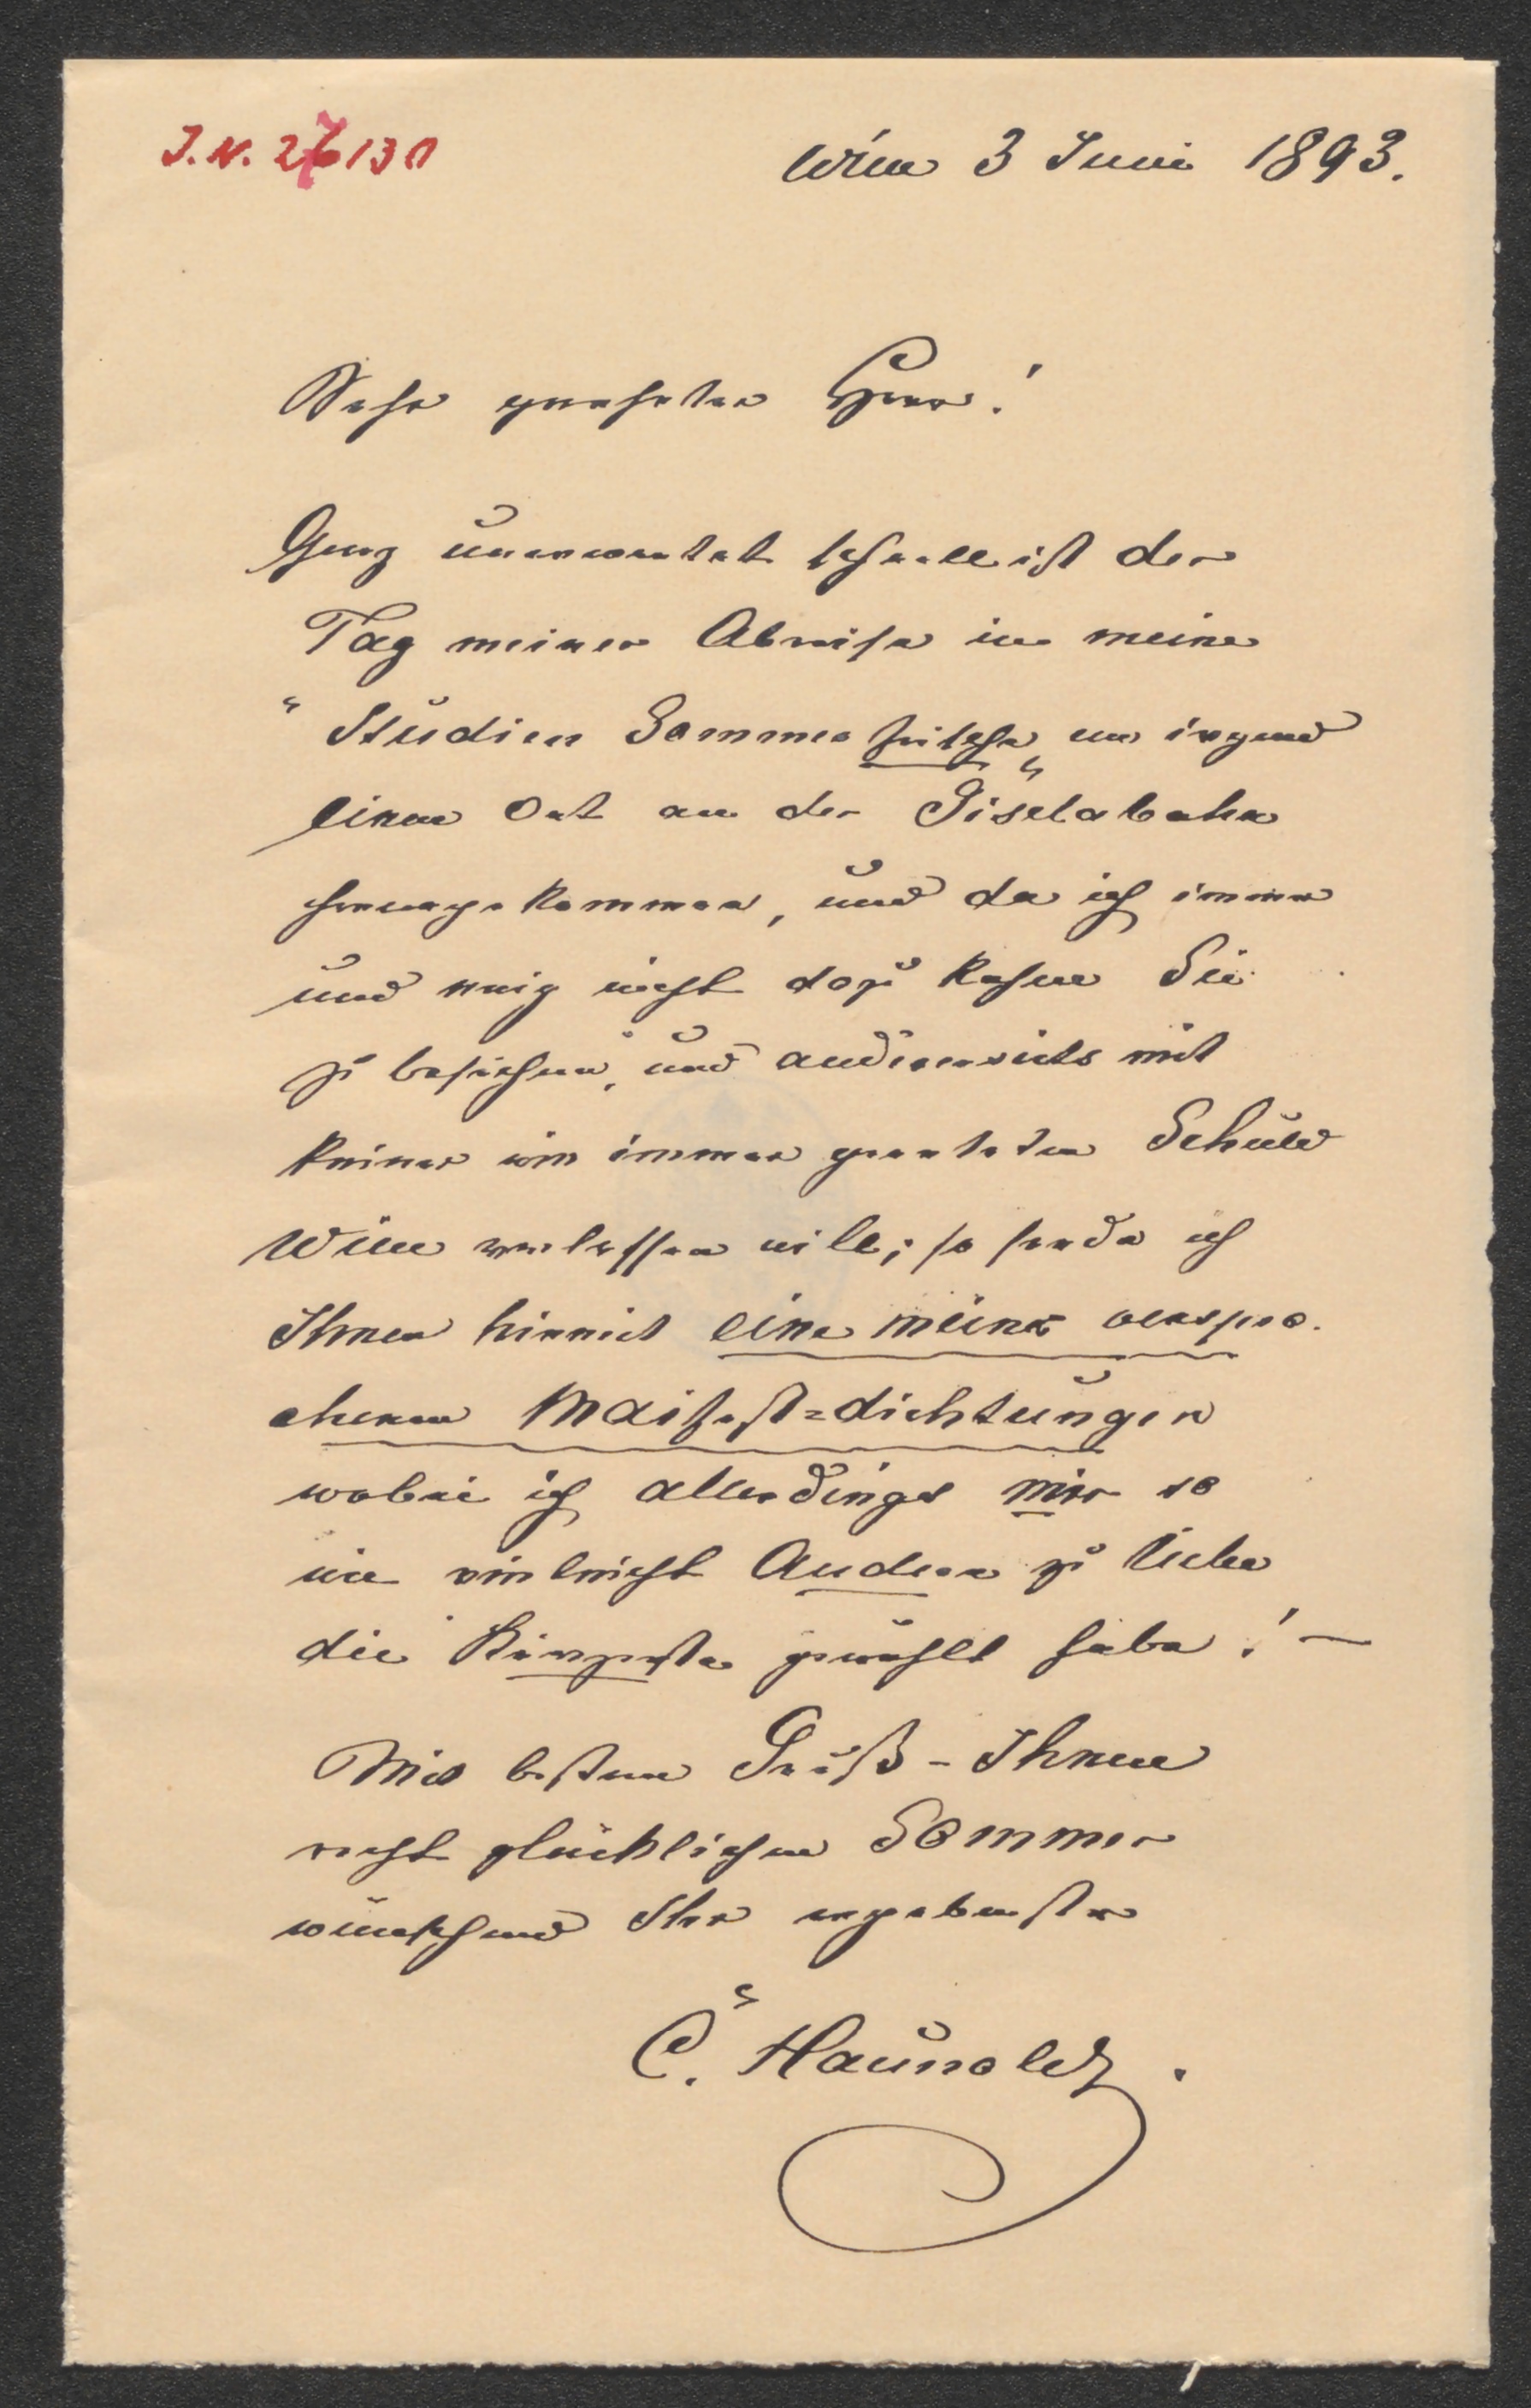 J.N. 27130
Wien 3 Juni 1893.
Sehr geehrter Herr!
Ganz unerwartet schnell ist der
Tag meiner Abreise in meine
"Studien Sommerfrische" an irgend
einen Ort an der Giselabahn
herangekommen, und da ich immer
und ewig nicht dazu komme Sie
zu besuchen, und andererseits mit
keiner wie immer gearteten Schuld
Wien verlassen will; so sende ich
Ihnen hiermit eine meiner verspro-
chenen Maifest=dichtungen
wobei ich allerdings mir so
wie vielleicht Andern zu liebe
die kürzeste gewählt habe! —
Mit bestem Gruß - Ihnen
recht glücklichen Sommer
wünschend Ihr ergebenster
C. Haunold.